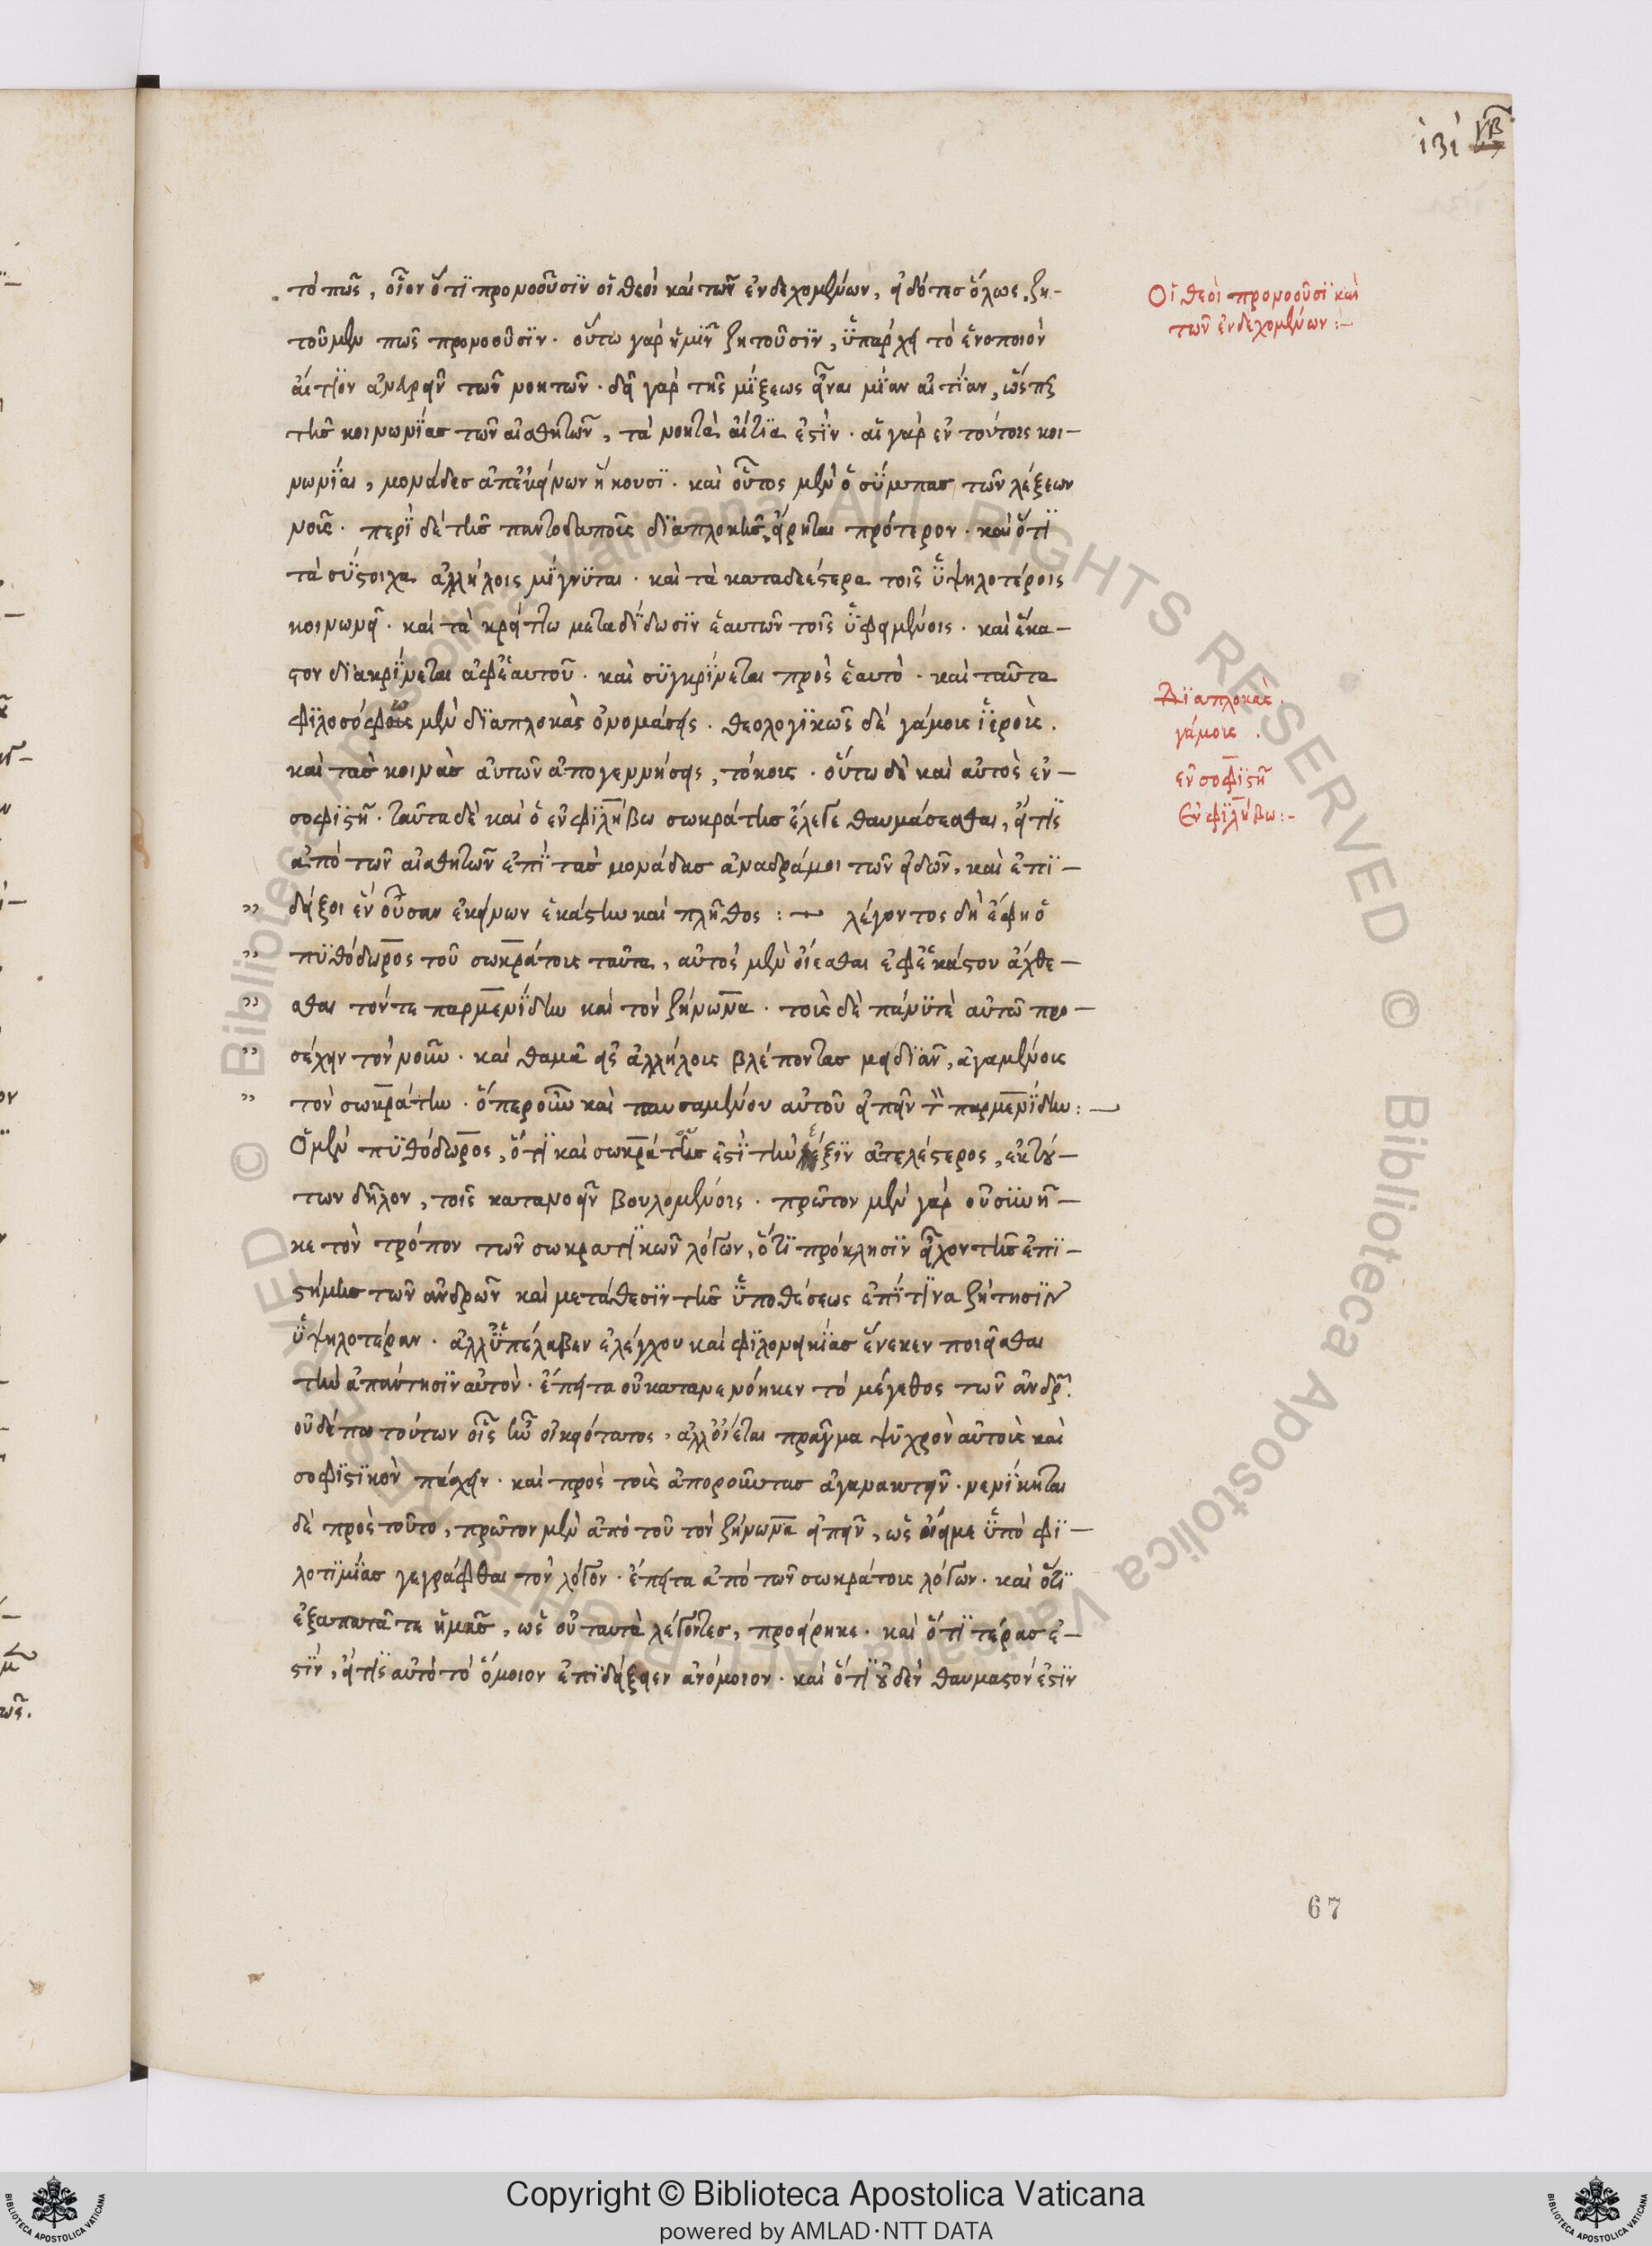 131 νβ
τὸ πῶς, οἷον ὅτι προνοοῦσιν οἱ θεοὶ καὶ τῶν ἐνδεχομένων, εἰδότες ὅλως, ζη-
τοῦμεν πῶς προνοοῦσιν. οὕτω γὰρ ἡμῖν ζητοῦσιν, ὑπάρχει τὸ ἑνοποιὸν
αἴτιον ἀνευρεῖν τῶν νοητῶν. δεῖ γὰρ τῆς μίξεως εἶναι μίαν αἰτίαν, ὥσπερ
τῆς κοινωνίας τῶν αἰσθητῶν, τὰ νοητὰ αἴτια ἐστίν. αἱ γὰρ ἐν τούτοις κοι-
νωνίαι, μονάδες ἀπ' ἐκείνων ἥκουσι. καὶ οὗτος μὲν ὁ σύμπας τῶν λέξεων
νοῦς. περὶ δὲ τῆς παντοδαποῦς διαπλοκῆς, εἴρηται πρότερον. καὶ ὅτι
τὰ σύστοιχα ἀλλήλοις μίγνυται. καὶ τὰ καταδεέστερα τοῖς ὑψηλοτέροις
κοινωνεῖ. καὶ τὰ κρείττω μεταδίδωσιν ἑαυτῶν τοῖς ὑφειμένοις. καὶ ἕκα-
στον διακρίνεται ἀφ' ἑαυτοῦ. καὶ συγκρίνεται πρὸς ἑαυτό. καὶ ταῦτα
φιλοσόφως μὲν διαπλοκὰς ὀνομάσεις. θεολογικῶς δὲ γάμους ἱερούς.
καὶ τὰς κοινὰς αὐτῶν ἀπογεννήσεις, τόκους. οὕτω δὲ καὶ αὐτὸς ἐν-
σοφιστῇ. ταῦτα δὲ καὶ ὁ ἐν φιλήβω σωκράτης ἔλεγε θαυμάσεσθαι, εἴ τις
ἀπὸ τῶν αἰσθητῶν ἐπὶ τὰς μονάδας ἀναδράμοι τῶν εἰδῶν, καὶ ἐπι-
" δείξοι ἓν οὖσαν ἐκείνων ἑκάστην καὶ πλῆθος : — λέγοντος δὴ ἔφη ὁ
" πυθόδωρος τοῦ σωκράτους ταῦτα, αὐτὸς μὲν οἴεσθαι ἐφ' ἑκάστου ἄχθε-
" σθαι τόν τε παρμενίδην καὶ τὸν ζήνωνα. τοὺς δὲ πάνυ τὲ αὐτῶ προ-
" σέχειν τὸν νοῦν. καὶ θαμὰ εἰς ἀλλήλους βλέποντας μειδιᾶν, ἀγαμένους
" τὸν σωκράτην. ὅπερ οὖν καὶ παυσαμένου αὐτοῦ εἰπεῖν τὸν παρμενίδην : —
Ὁ μὲν πυθόδωρος, ὅτι καὶ σωκράτους ἐστὶ τὴν ἕξιν ἀτελέστερος, ἐκ τού-
των δῆλον, τοῖς κατανοεῖν βουλομένοις. πρῶτον μὲν γὰρ οὐ συνῆ-
κε τὸν τρόπον τῶν σωκρατικῶν λόγων, ὅτι πρόκλησιν εἶχον τῆς ἐπι-
στήμης τῶν ἀνδρῶν καὶ μετάθεσιν τῆς ὑποθέσεως ἐπί τινα ζήτησιν
ὑψηλοτέραν. ἀλλ' ὑπέλαβεν ἐλέγχου καὶ φιλονεικίας ἕνεκεν ποιεῖσθαι
τὴν ἀπάντησιν αὐτόν. ἔπειτα οὐ κατανενόηκεν τὸ μέγεθος τῶν ἀνδρῶν
οὐδέπω τούτων οἷς ἦν οἰκειότατος, ἀλλ' οἴεται πρᾶγμα ψυχρὸν αὐτοὺς καὶ
σοφιστικὸν πάσχειν. καὶ πρὸς τοὺς ἀποροῦντας ἀγανακτεῖν. κεκίνηται
δὲ πρὸς τοῦτο, πρῶτον μὲν ἀπὸ τοῦ τὸν ζήνωνα εἰπεῖν, ὡς οἴει με ὑπὸ φι-
λοτιμίας γεγράφθαι τὸν λόγον. ἔπειτα ἀπὸ τῶν σωκράτους λόγων. καὶ ὅτι
ἐξαπατᾶτε ἡμᾶς, ὡς οὐ ταυτὰ λέγοντες, προείρηκε. καὶ ὅτι τέρας ἐ-
στίν, εἴ τις αὐτὸ τὸ ὅμοιον ἐπιδείξειεν ἀνόμοιον. καὶ ὅτι οὐδὲν θαυμαστόν ἐστιν
Οἱ θεοὶ προνοοῦσι καὶ
τῶν ἐνδεχομένων :-
Διαπλοκάς.
γάμους.
ἐν σοφιστῇ
Ἐν φιλήβω :-
67
© Biblioteca Apostolica Vaticana ALL RIGHTS RESERVED © Biblioteca Apostolica Vaticana ALL RIGHTS RESERVED
Copyright © Biblioteca Apostolica Vaticana
powered by AMLAD·NTT DATA
BIBLIOTECA APOSTOLICA VATICANA
BIBLIOTECA APOSTOLICA VATICANA